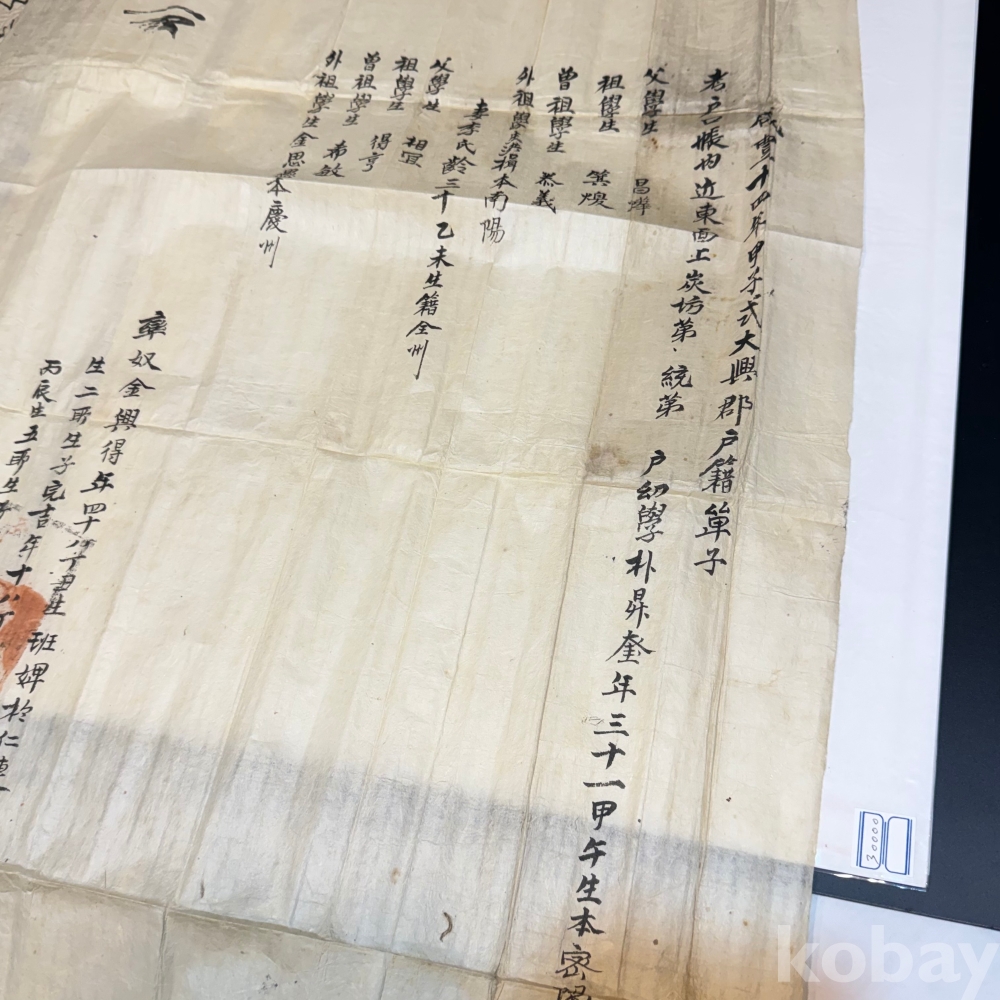 咸豊十四年甲子式大興郡户籍單子
考户口帳內近東面上炭坊第 統第 户幼學朴昇奎年三十一甲午生本密陽
父學生 昌燁
祖學生 箕煥
曾祖學生 泰義
外祖學生洪楫本南陽
妻李氏齡三十乙未生籍全州
父學生 相冝
祖學生 得亨
曾祖學生 希敏
外祖學生金思 本慶州
率奴金興得年四十 丁丑生 班婢於仁
生二所生子完吉年十八丁
丙辰生五所生
30000
kobay